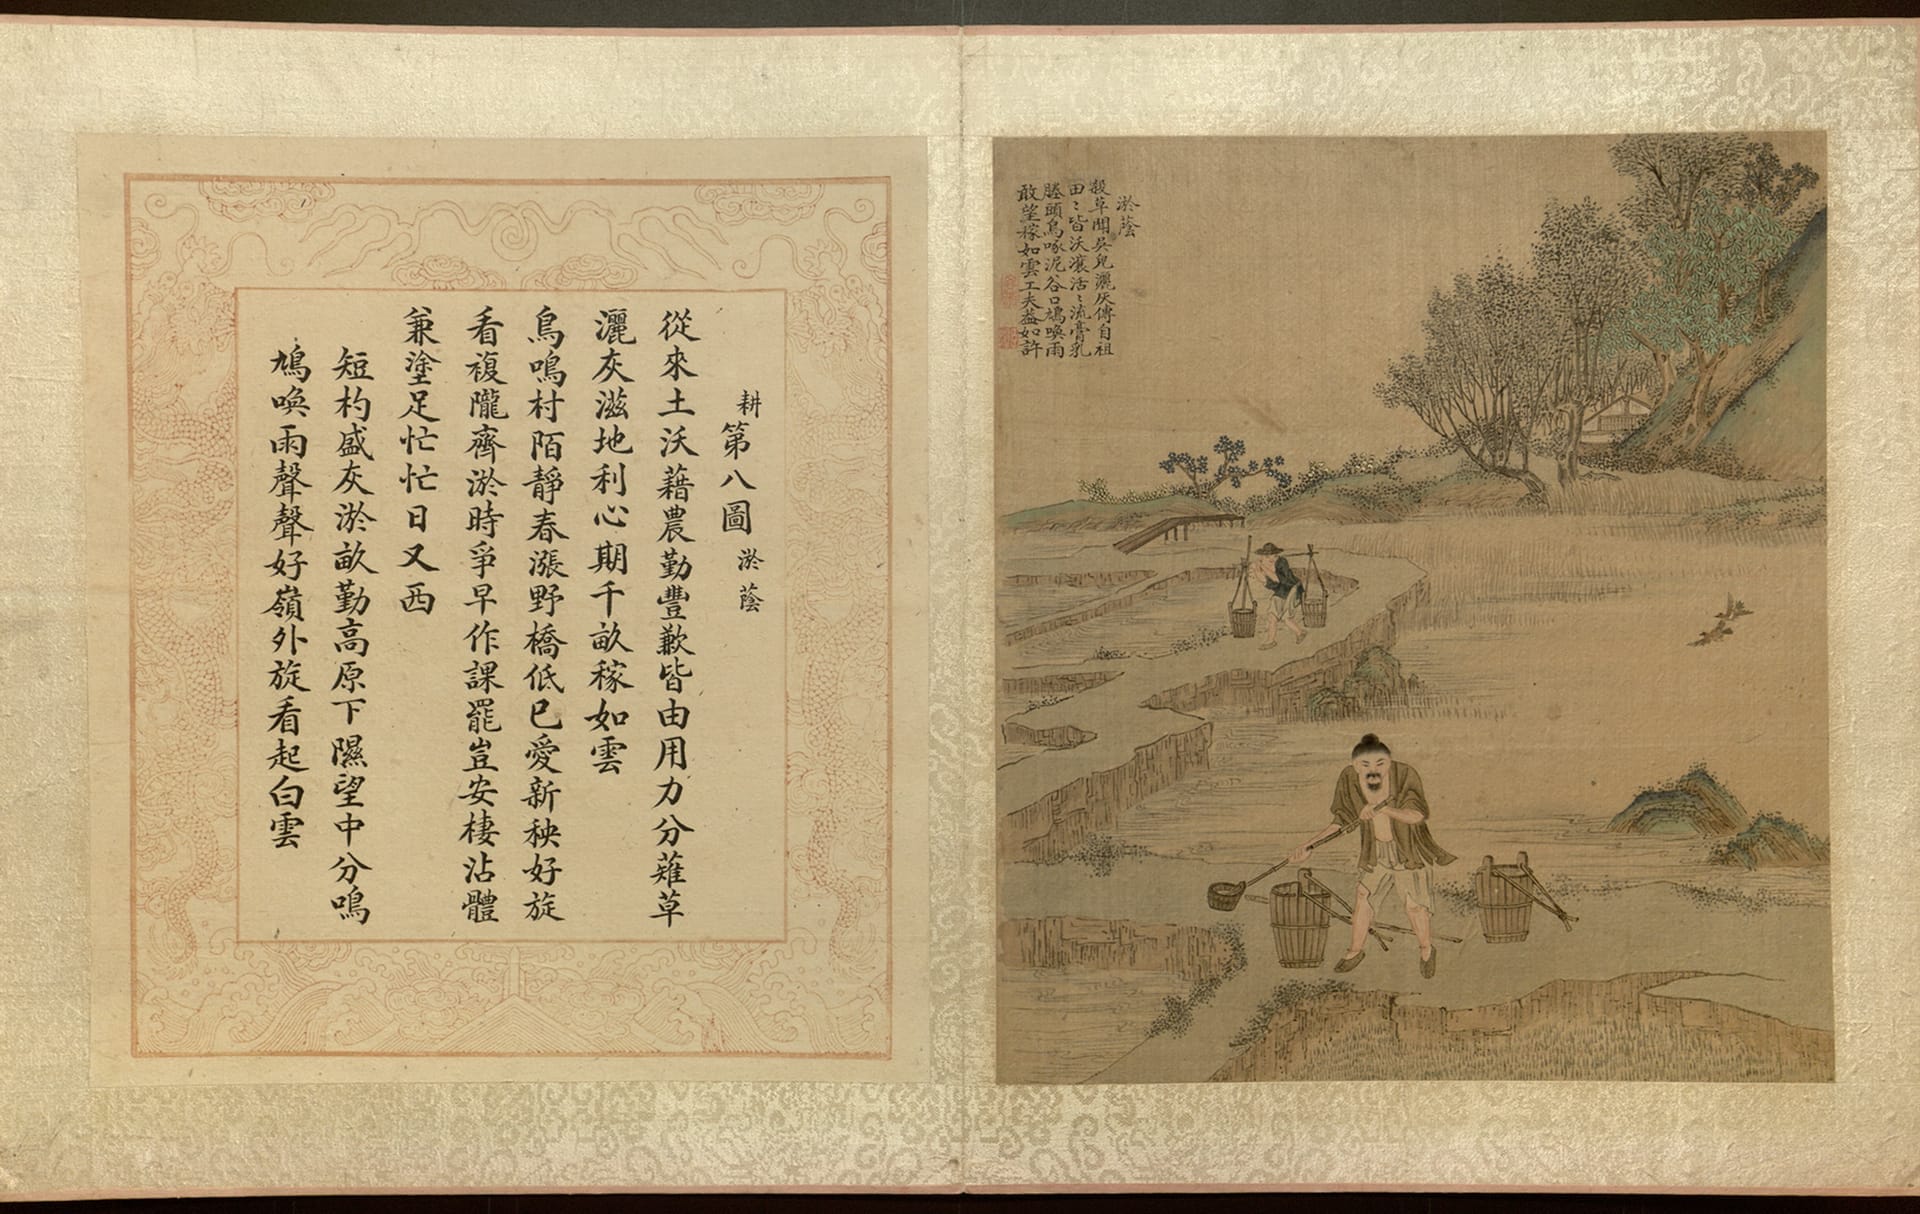 耕第八圖淤蔭
從來土沃藉農勤豐歉皆由用力分薙草
灑灰滋地利心期千畝稼如雲
鳥鳴村陌靜春漲野橋低已愛新秧好旋
看複隴齊淤時爭早作課罷豈安棲沾體
兼塗足忙忙日又西
短杓盛灰淤畝勤高原下隰望中分鳴
鳩喚雨聲聲好嶺外旋看起白雲
淤蔭
殺草聞吳兒灑灰傳自祖
田〻皆沃瀼活〻流膏乳
塍頭鳥啄泥谷口鳩喚雨
敢望稼如雲工夫益如許